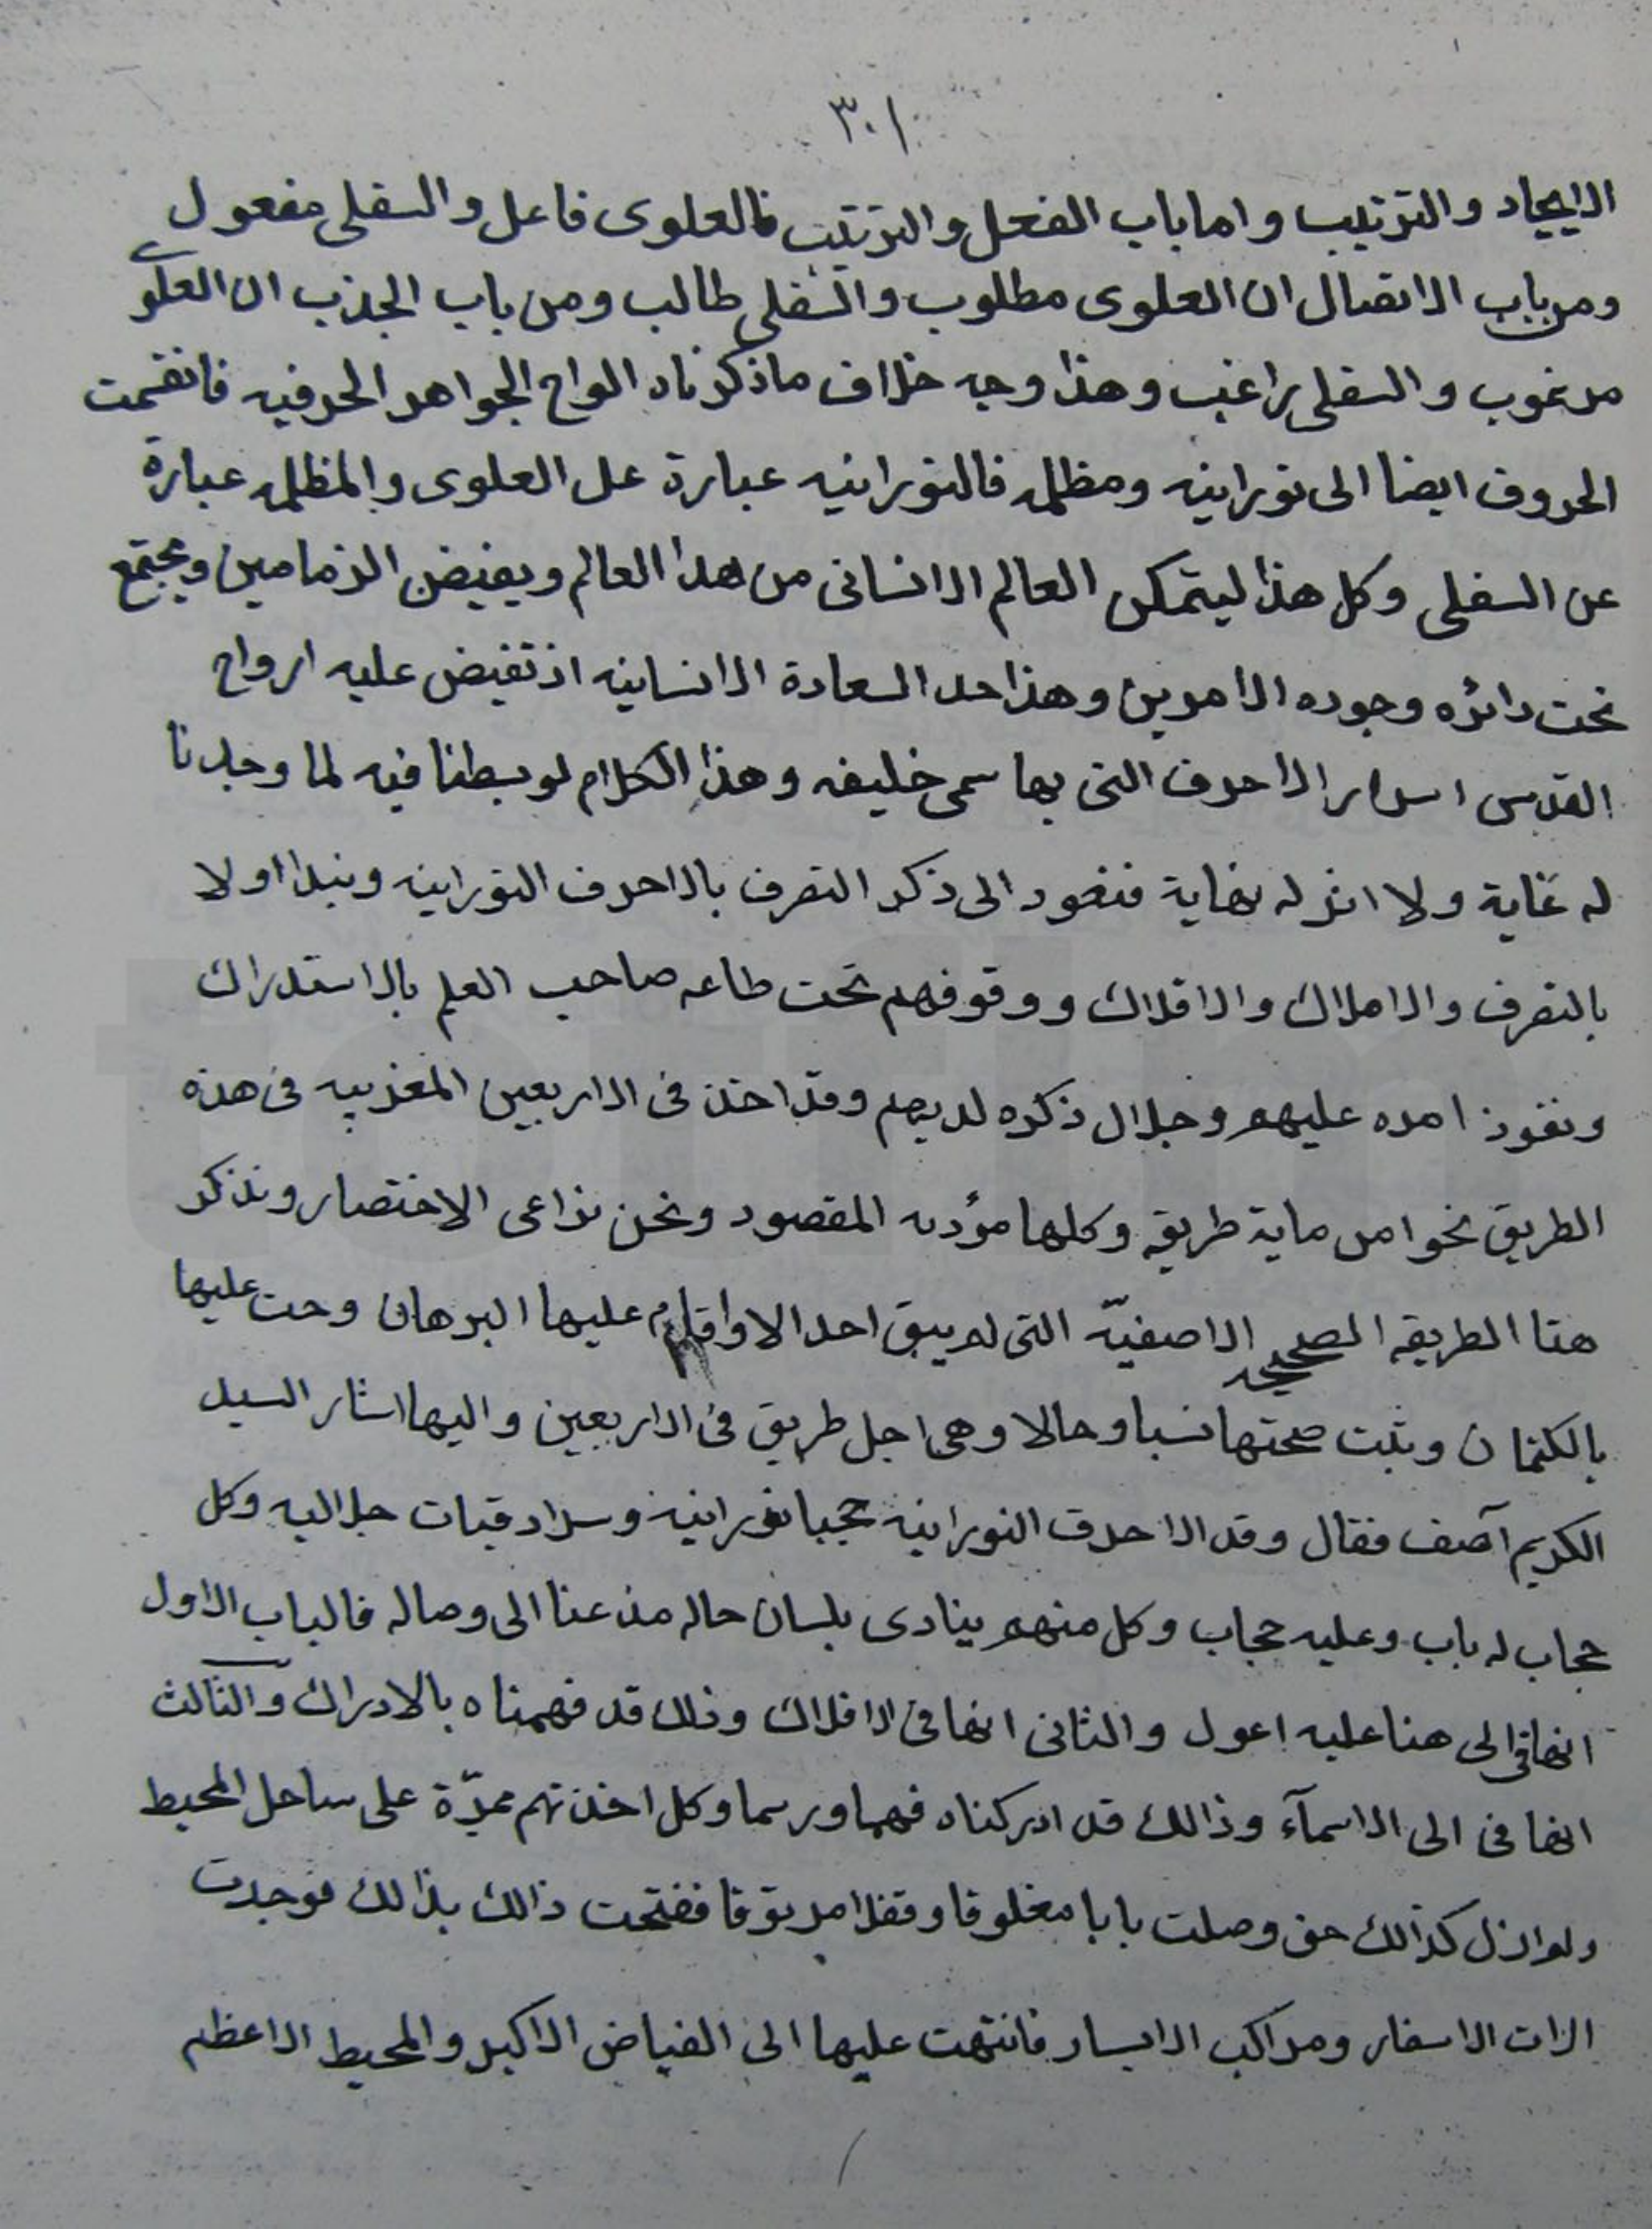 ٣٠١
الايجاد والترتيب واما باب الفعل والترتيب فالعلوى فاعل والسفلى مفعول
ومن باب الاتصال ان العلوى مطلوب والسفلى طالب ومن باب الجذب ان العلوى
مرغوب والسفلى راغب وهذا وجه خلاف ما ذكرناه الواح الجواهر الحرفيه فانقسمت
الحروف ايضا الى نورانيه ومظلمه فالنورانيه عبارة عن العلوى والمظلمه عبارة
عن السفلى وكل هذا ليتمكن العالم الانسانى من هذا العالم ويفيض الزمامين ويجتمع
تحت دائره وجوده الامرين وهذا حد السعادة الانسانيه اذ تفيض عليه ارواح
القدس اسرار الاحرف التى بها سمى خليفه وهذا الكلام لو بسطنا فيه لما وجدنا
له غاية ولا انزله نهاية فنعود الى ذكر التصرف بالاحرف النورانيه ونبدا اولا
بالتصرف والاملاك والافلاك ووقوفهم تحت طاعه صاحب العلم بالاستدراك
ونفوذ امره عليهم وجلال ذكره لديهم وقد اخذ فى الاربعين المغربيه فى هذه
الطريق نحوا من ماية طريقه وكلها مؤديه المقصود ونحن نراعى الاختصار ونذكر
هنا الطريقه الصحيحه الاصفيّه التى لم يبق احد الا واقام عليها البرهان وحت عليها
بالكتمان وثبت صحتها نسبا وحالا وهى اجل طريق فى الاربعين واليها اشار السيد
الكريم آصف فقال وقد الاحرف النورانيه حجبا نورانيه وسرادقات جلاليه وكل
حجاب له باب وعليه حجاب وكل منهم ينادى بلسان حاله من عنا الى وصاله فالباب الاول
انهافى الى هنا عليه اعول والثانى انهافى الافلاك وذلك قد فهمناه بالادراك والثالث
انهافى الى الاسمآء وذالك قد ادركناه فهما ورسما وكل اخذتهم ممدّة على ساحل المحيط
ولم ازل كذالك حتى وصلت بابا مغلوقا وقفلا مربوقا ففتحت ذالك بذالك فوجدت
الات الاسفار ومراكب الابسار فانتهت عليها الى الفياض الاكبر والمحيط الاعظم